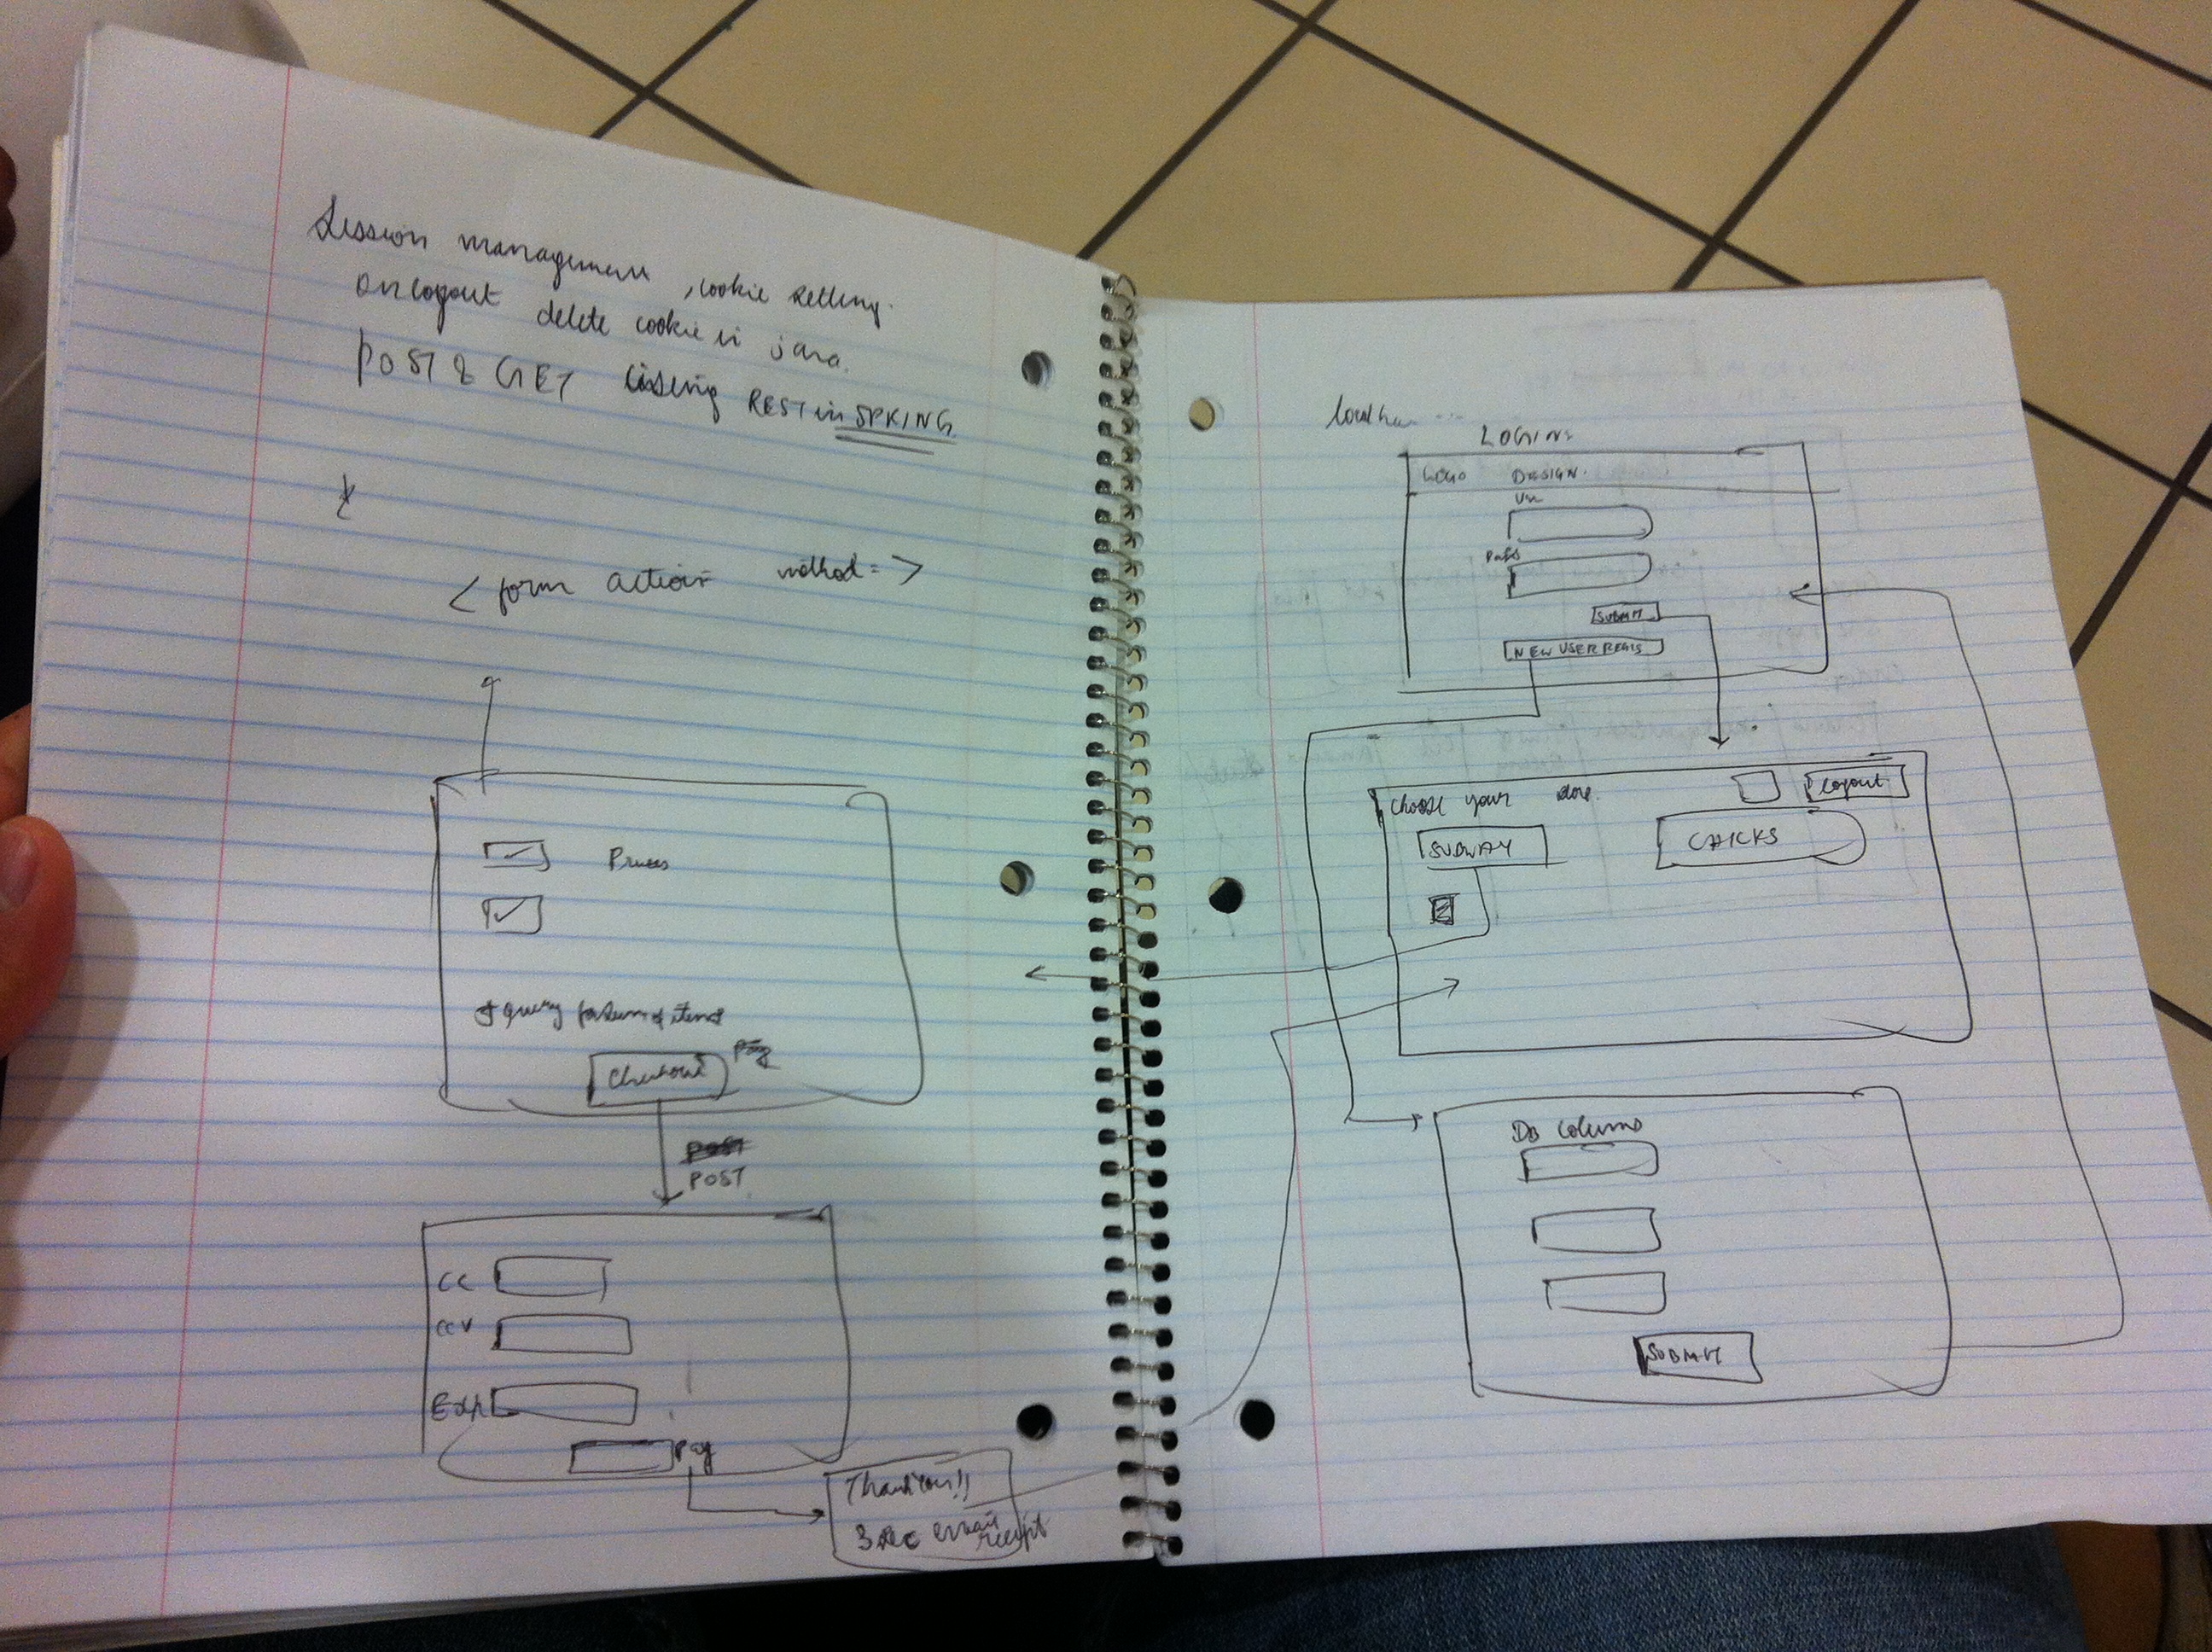 Session management, cookie setting.
on logout delete cookie in java.
POST & GET using REST in SPRING.
< form action method = >
Prices
Jquery for sum of items
Checkout
POST
CC
CCV
Exp
Pay
Thank You!!
3 sec email receipt
LOGIN
LOGO DESIGN.
UN
Pass
SUBMIT
NEW USER REGIS
Choose your store.
Logout
SUBWAY
CHICKS
DB columns
SUBMIT